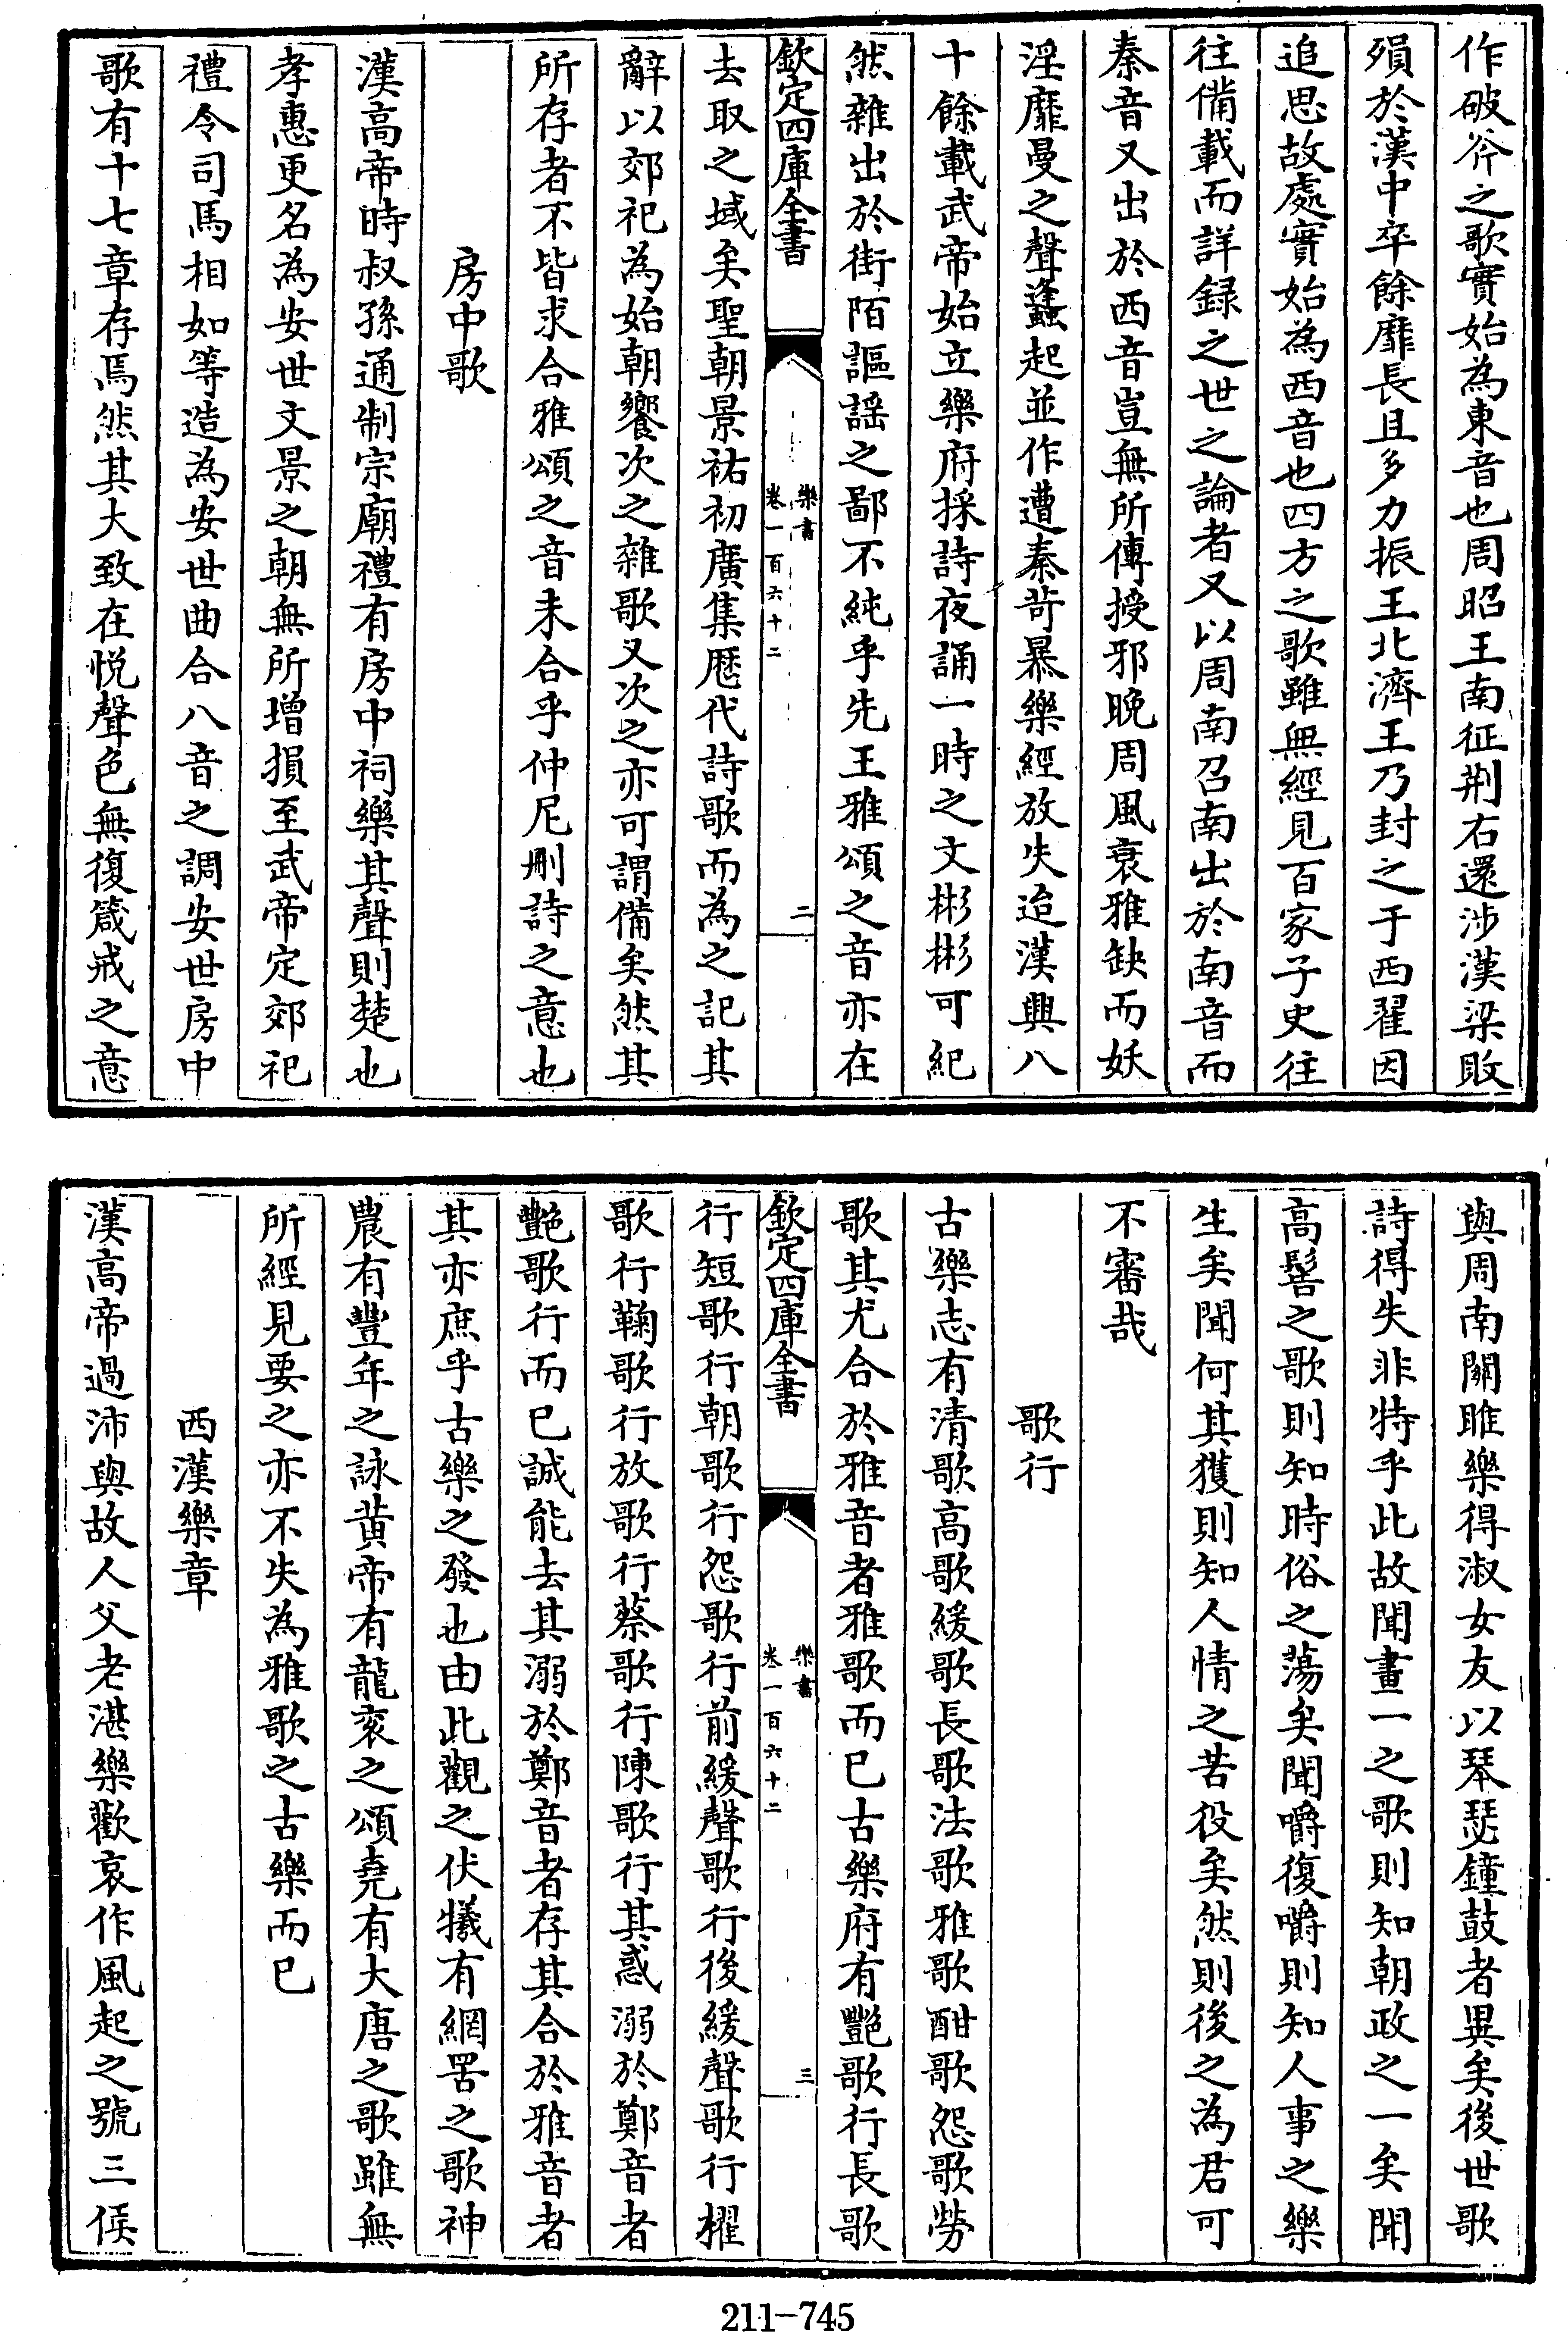 作破斧之歌實始為東音也周昭王南征荆右還涉漢梁敗
殞於漢中卒餘靡長且多力振王北濟王乃封之于西翟因
追思故處實始為西音也四方之歌雖無經見百家子史往
往備載而詳録之世之論者又以周南召南出於南音而
秦音又出於西音豈無所傳授邪晚周風衰雅缺而妖
淫靡曼之聲蠭起並作遭秦苛暴樂經放失迨漢興八
十餘載武帝始立樂府採詩夜誦一時之文彬彬可紀
然雜出於街陌謳謡之鄙不純乎先王雅頌之音亦在
欽定四庫全書
樂書
卷一百六十二
二
去取之域矣聖朝景祐初廣集歴代詩歌而為之記其
辭以郊祀為始朝饗次之雜歌又次之亦可謂備矣然其
所存者不皆求合雅頌之音未合乎仲尼刪詩之意也
房中歌
漢高帝時叔孫通制宗廟禮有房中祠樂其聲則楚也
孝惠更名為安世文景之朝無所增損至武帝定郊祀
禮令司馬相如等造為安世曲合八音之調安世房中
歌有十七章存焉然其大致在悦聲色無復箴戒之意
與周南關雎樂得淑女友以琴瑟鐘鼓者異矣後世歌
詩得失非特乎此故聞畫一之歌則知朝政之一矣聞
高髻之歌則知時俗之蕩矣聞嚼復嚼則知人事之樂
生矣聞何其獲則知人情之苦役矣然則後之為君可
不審哉
歌行
古樂志有清歌高歌緩歌長歌法歌雅歌酣歌怨歌勞
歌其尤合於雅音者雅歌而已古樂府有艷歌行長歌
欽定四庫全書
樂書
卷一百六十二
三
行短歌行朝歌行怨歌行前緩聲歌行後緩聲歌行櫂
歌行鞠歌行放歌行蔡歌行陳歌行其惑溺於鄭音者
艷歌行而已誠能去其溺於鄭音者存其合於雅音者
其亦庶乎古樂之發也由此觀之伏犧有網罟之歌神
農有豐年之詠黄帝有龍衮之頌堯有大唐之歌雖無
所經見要之亦不失為雅歌之古樂而已
西漢樂章
漢高帝過沛與故人父老湛樂歡哀作風起之號三侯
211-745